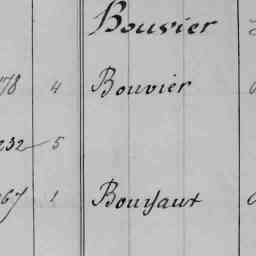 Bouvier
78 4 Bouvier
232 5
67 1